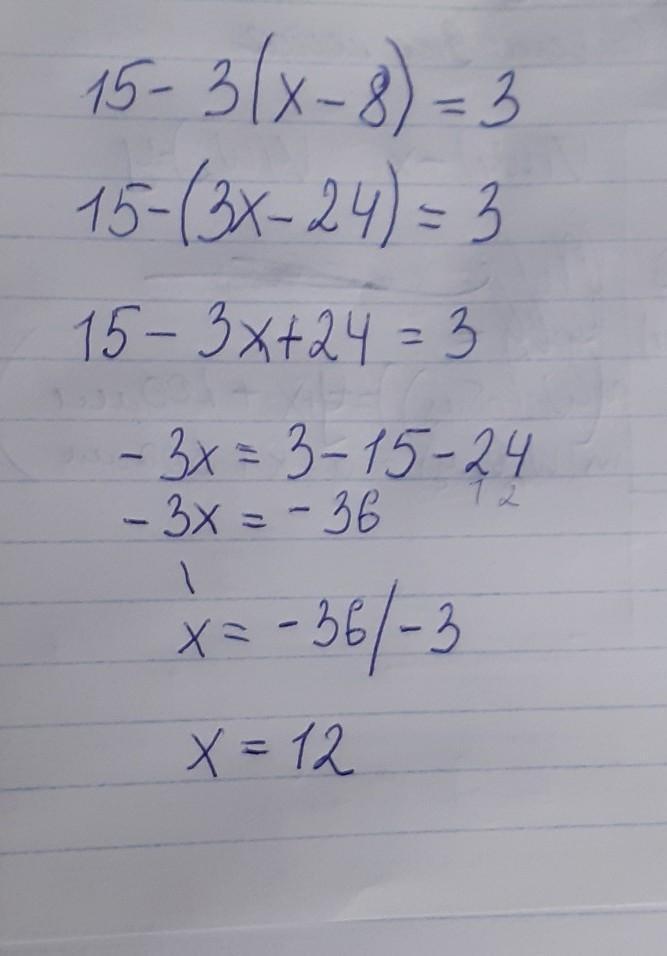 15 - 3(x - 8) = 3
15 - (3x - 24) = 3
15 - 3x + 24 = 3
- 3x = 3 - 15 - 24
12
- 3x = - 36
x = - 36 / - 3
x = 12